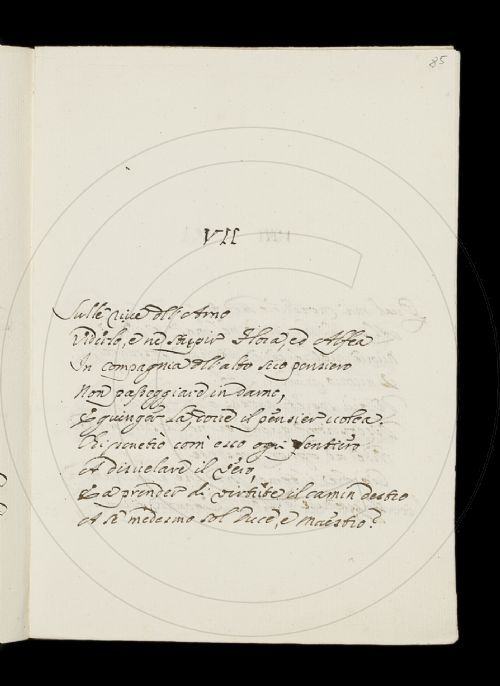 85
VII
Sulle rive dell'Arno
Vidirlo, e ne stupir Flora, ed Alfea
In compagnia dell'alto seco pensiero
Non passeggiare indarno,
E giunger là, dove il pensier volea.
Ei ripenetiò com' esso ogni sentiero
A disvelare il vero,
E a prender di virtute il camin destro
A se medesmo sol Duce, e Maestro.